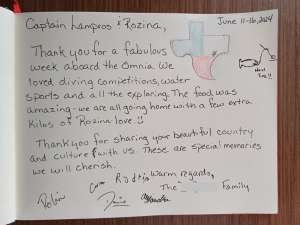 Captain Lampros & Rozina,
June 11-16, 2024
Thank you for a fabulous
week aboard the Omnia. We
loved diving competitions, water
sports and all the exploring. The food was
amazing - we are all going home with a few extra
kilos of Rozina love!!
Thank you for sharing your beautiful country
and culture with us. These are special memories
we will cherish.
Warm regards,
The Family
Robin